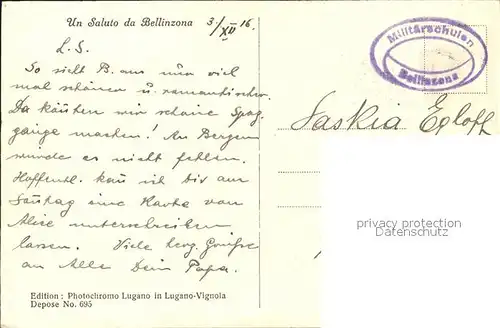 Un Saluto da Bellinzona 3./XII 16.
L. S.
So sieht B. aus nur viel
mal schöner u. romantischer.
Da könnten wir schöne Spaz-
gänge machen! An Bergen
würde es nicht fehlen.
Hoffentl. kan ich bis am
Sontag eine Karte von
Alice unterschreiben
lassen. Viele herz. Grüsse
an Alle Dein Papa.
Edition : Photochromo Lugano in Lugano-Vignola
Depose No. 695
Militärschulen
Bellinzona
Saskia Egloff
privacy protection
watermark